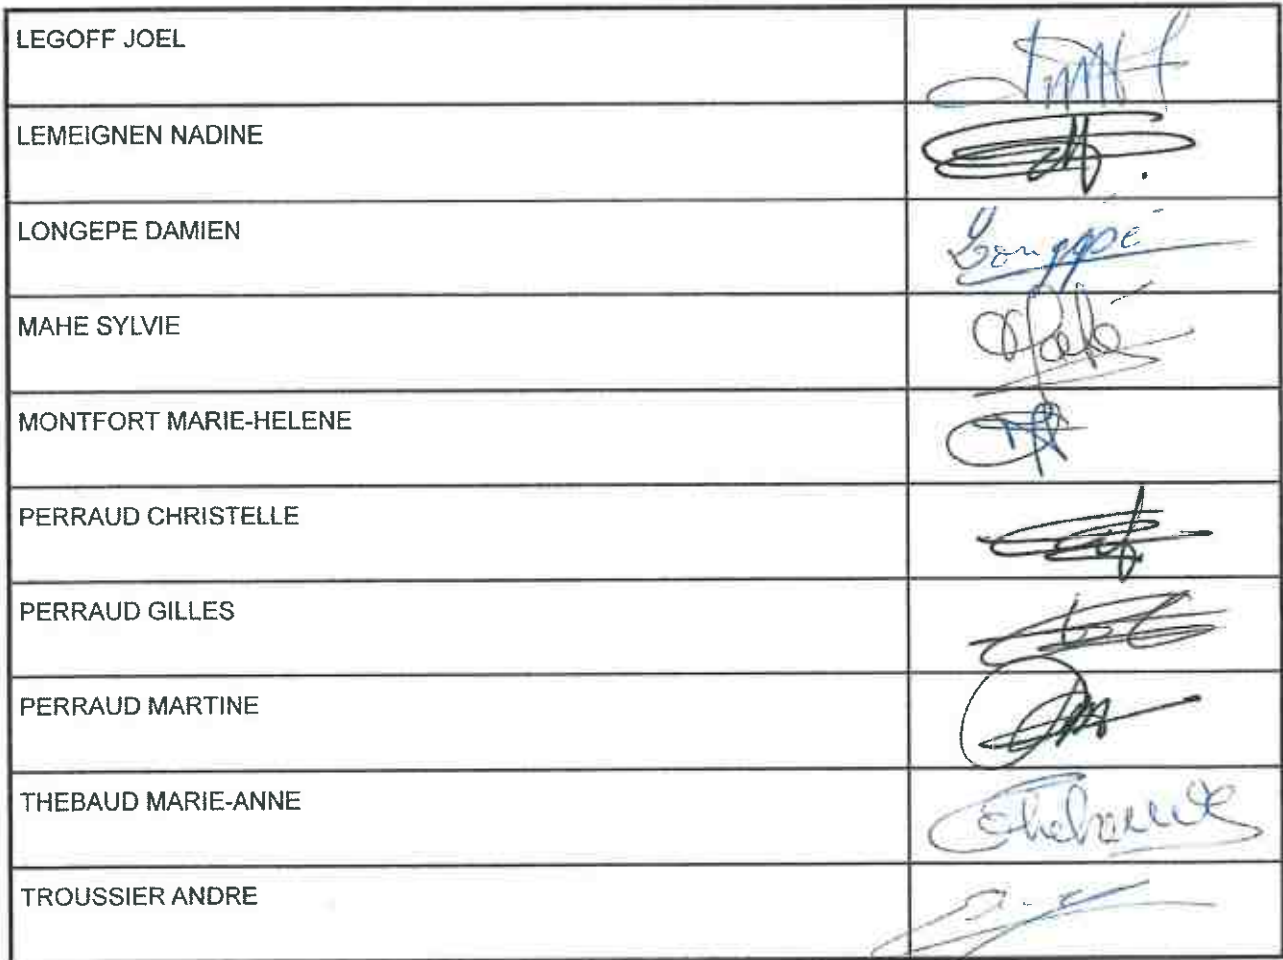 LEGOFF JOEL
LEMEIGNEN NADINE
LONGEPE DAMIEN
Longépé
MAHE SYLVIE
Mahé
MONTFORT MARIE-HELENE
PERRAUD CHRISTELLE
PERRAUD GILLES
PERRAUD MARTINE
THEBAUD MARIE-ANNE
Thebaud
TROUSSIER ANDRE